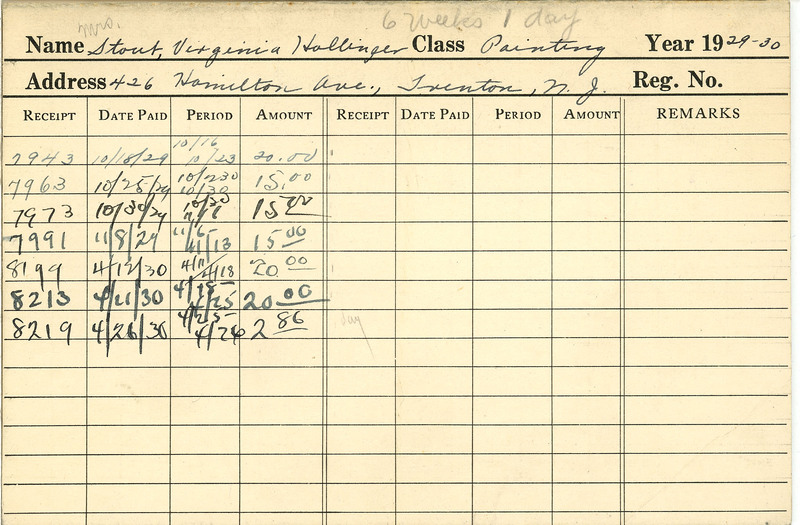 Mrs.
6 weeks 1 day
Name Stout, Virginia Hollinger Class Painting Year 1929-30
Address 426 Hamilton Ave., Trenton, N. J. Reg. No.
RECEIPT DATE PAID PERIOD AMOUNT RECEIPT DATE PAID PERIOD AMOUNT REMARKS
10/16
7943 10/18/29 10/23 20.00
7963 10/25/29 10/30 15.00
7973 10/30/29 15.00
7991 11/8/29 11/13 15.00
8199 4/12/30 4/11 4/18 20.00
8213 4/21/30 4/18 4/25 20.00
8219 4/26/30 4/25 4/26 2.86
day